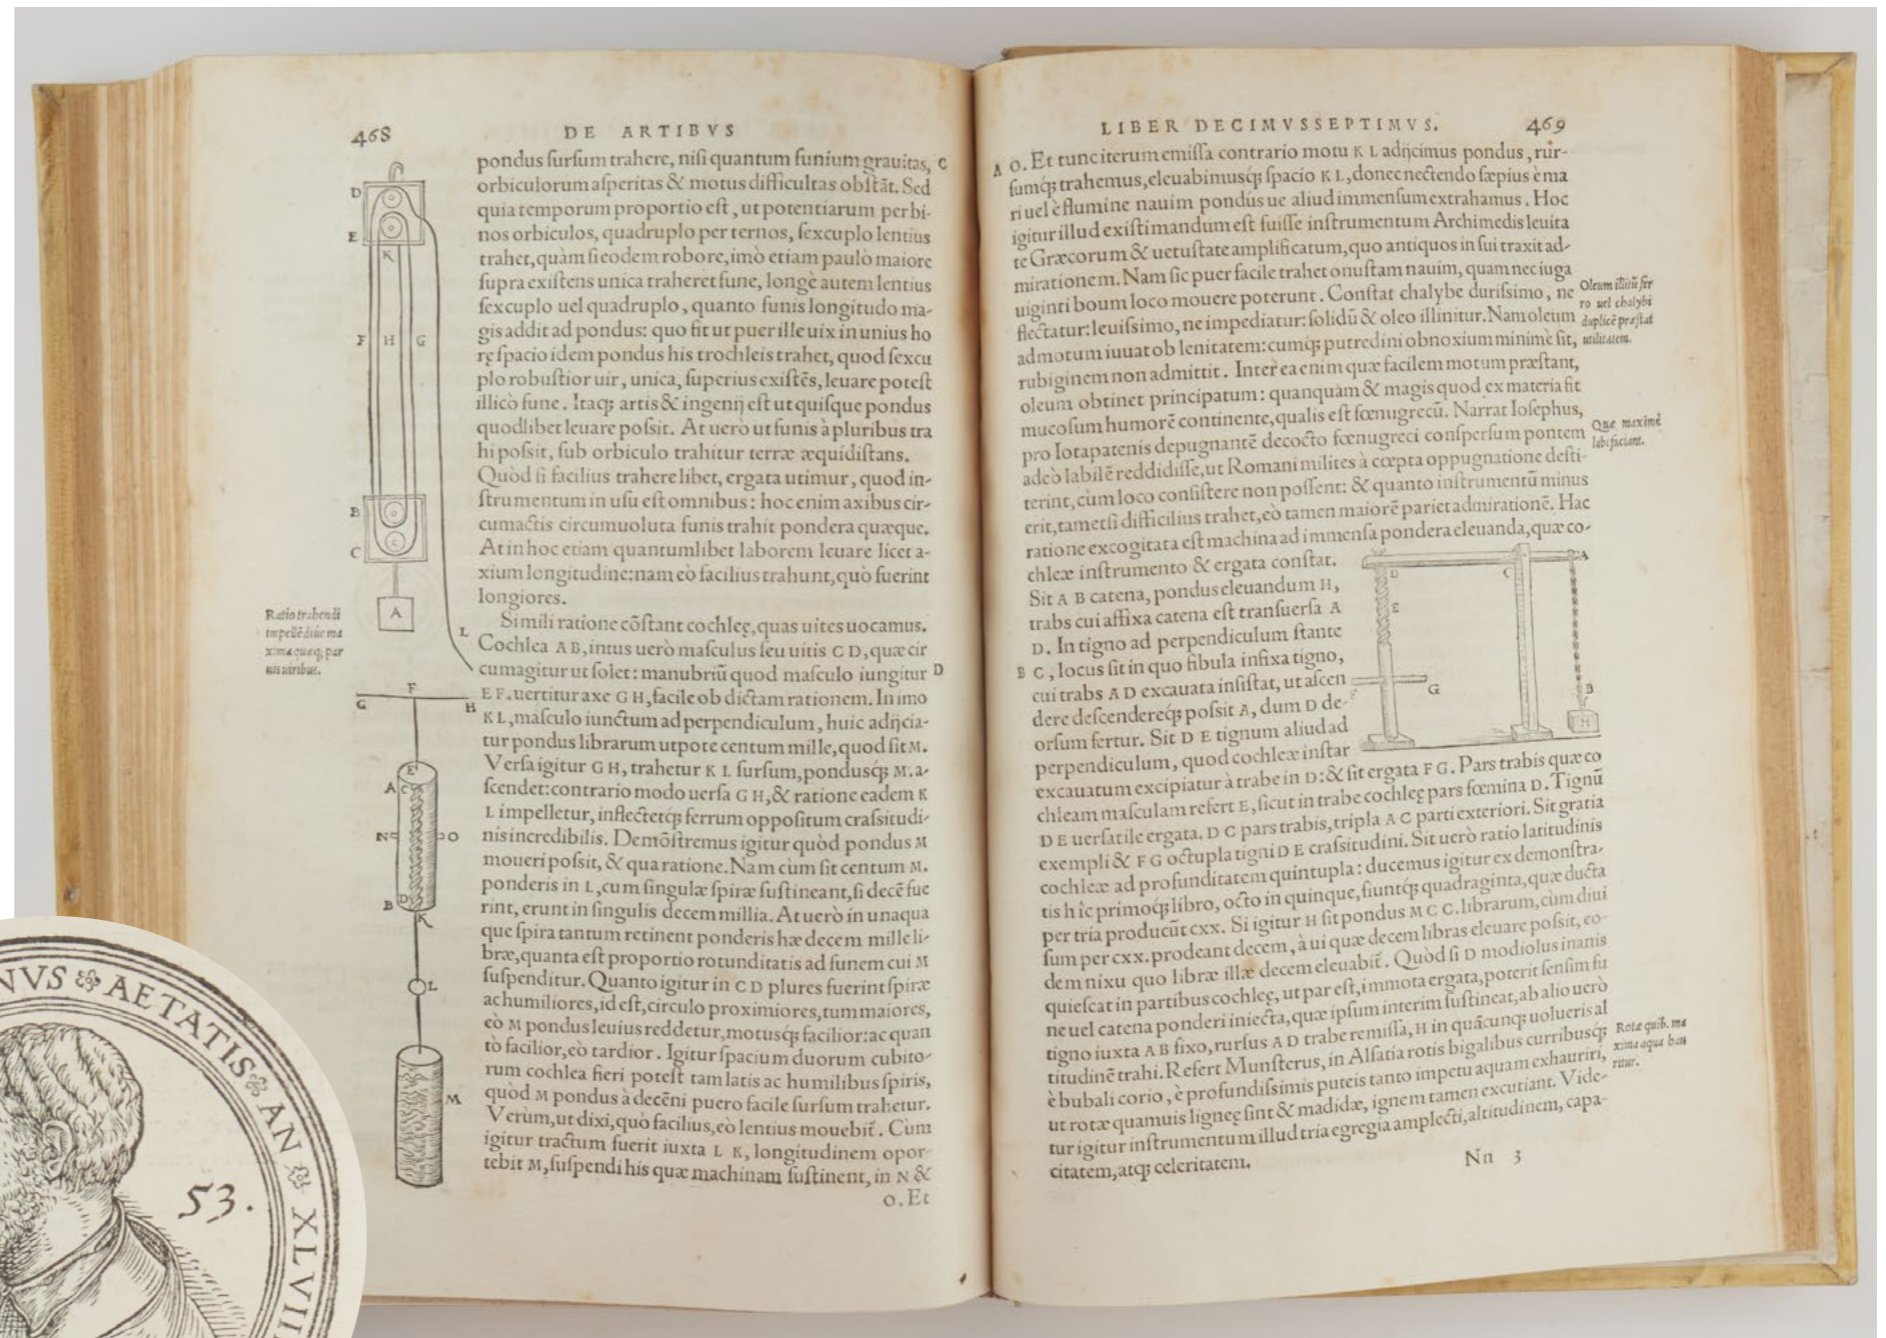 468
DE ARTIBVS
pondus ſurſum trahere, niſi quantum funium grauitas, C
orbiculorum aſperitas & motus difficultas obſtāt. Sed
quia temporum proportio eſt, ut potentiarum per bi-
nos orbiculos, quadruplo per ternos, ſexcuplo lentius
trahet, quàm ſi eodem robore, imò etiam paulò maiore
ſupra exiſtens unica traheret fune, longè autem lentius
ſexcuplo uel quadruplo, quanto funis longitudo ma-
gis addit ad pondus: quo fit ut puer ille uix in unius ho
rę ſpacio idem pondus his trochleis trahet, quod ſexcu
plo robuſtior uir, unica, ſuperius exiſtēs, leuare poteſt
illicò fune. Itaq; artis & ingenij eſt ut quiſque pondus
quodlibet leuare poſsit. At uerò ut funis à pluribus tra
hi poſsit, ſub orbiculo trahitur terræ æquidiſtans.
Quòd ſi facilius trahere libet, ergata utimur, quod in-
ſtrumentum in uſu eſt omnibus: hoc enim axibus cir-
cumactis circumuoluta funis trahit pondera quæque.
At in hoc etiam quantumlibet laborem leuare licet a-
xium longitudine: nam eò facilius trahunt, quò fuerint
longiores.
Simili ratione cōſtant cochleę, quas uites uocamus.
Cochlea A B, intus uerò maſculus ſeu uitis C D, quæ cir
cumagitur ut ſolet: manubriũ quod maſculo iungitur D
E F. uertitur axe G H, facile ob dictam rationem. In imo
K L, maſculo iunctum ad perpendiculum, huic adijcia-
tur pondus librarum utpote centum mille, quod ſit M.
Verſa igitur G H, trahetur K L ſurſum, pondusq́; M. a-
ſcendet: contrario modo uerſa G H, & ratione eadem K
L impelletur, inflectetq́; ferrum oppoſitum craſsitudi-
nis incredibilis. Demōſtremus igitur quòd pondus M
moueri poſsit, & qua ratione. Nam cùm ſit centum M.
ponderis in L, cum ſingulæ ſpiræ ſuſtineant, ſi decē fue
rint, erunt in ſingulis decem millia. At uerò in unaqua
que ſpira tantum retinent ponderis hæ decem mille li-
bræ, quanta eſt proportio rotunditatis ad funem cui M
ſuſpenditur. Quanto igitur in C D plures fuerint ſpiræ
ac humiliores, id eſt, circulo proximiores, tum maiores,
eò M pondus leuius reddetur, motusq́; facilior: ac quan
tò facilior, eò tardior. Igitur ſpacium duorum cubito-
rum cochlea fieri poteſt tam latis ac humilibus ſpiris,
quòd M pondus à decēni puero facile ſurſum trahetur.
Verùm, ut dixi, quò facilius, eò lentius mouebit̃. Cùm
igitur tractum fuerit iuxta L K, longitudinem opor-
tebit M, ſuſpendi his quæ machinam ſuſtinent, in N &
O. Et
D
E
K
F H G
B
C
A
L
Ratio trahendi
impellẽdiue ma
xima quæq; par
uis uiribus.
F
G H
E
A C
N O
D
B
K
L
M
LIBER DECIMVSSEPTIMVS. 469
A O. Et tunc iterum emiſſa contrario motu K L adijcimus pondus, rur-
ſumq́; trahemus, eleuabimusq́; ſpacio K L, donec nectendo ſæpius è ma
ri uel è flumine nauim pondus ue aliud immenſum extrahamus. Hoc
igitur illud exiſtimandum eſt fuiſſe inſtrumentum Archimedis leuita
te Græcorum & uetuſtate amplificatum, quo antiquos in ſui traxit ad-
mirationem. Nam ſic puer facile trahet onuſtam nauim, quam nec iuga
uiginti boum loco mouere poterunt. Conſtat chalybe duriſsimo, ne
flectatur: leuiſsimo, ne impediatur: ſolidũ & oleo illinitur. Nam oleum
admotum iuuat ob lenitatem: cumq́; putredini obnoxium minimè ſit,
rubiginem non admittit. Inter ea enim quæ facilem motum præſtant,
oleum obtinet principatum: quanquàm & magis quod ex materia fit
mucoſum humorē continente, qualis eſt fœnugrecũ. Narrat Ioſephus,
pro Iotapatenis depugnantē decocto fœnugreci conſperſum pontem
adeò labilē reddidiſſe, ut Romani milites à cœpta oppugnatione deſti-
terint, cùm loco conſiſtere non poſſent: & quanto inſtrumentũ minus
erit, tametſi difficilius trahet, eò tamen maiorē pariet admirationē. Hac
ratione excogitata eſt machina ad immenſa pondera eleuanda, quæ co-
chleæ inſtrumento & ergata conſtat.
Sit A B catena, pondus eleuandum H,
trabs cui affixa catena eſt tranſuerſa A
D. In tigno ad perpendiculum ſtante
B C, locus ſit in quo fibula infixa tigno,
cui trabs A D excauata inſiſtat, ut aſcen
dere deſcendereq́; poſsit A, dum D de-
orſum fertur. Sit D E tignum aliud ad
perpendiculum, quod cochleæ inſtar
excauatum excipiatur à trabe in D: & ſit ergata F G. Pars trabis quæ co
chleam maſculam refert E, ſicut in trabe cochleę pars fœmina D. Tignũ
D E uerſatile ergata. D C pars trabis, tripla A C parti exteriori. Sit gratia
exempli & F G octupla tigni D E craſsitudini. Sit uerò ratio latitudinis
cochleæ ad profunditatem quintupla: ducemus igitur ex demonſtra-
tis hîc primoq́; libro, octo in quinque, fiuntq́; quadraginta, quæ ducta
per tria producũt CXX. Si igitur H ſit pondus M C C. librarum, cùm diui
ſum per CXX. prodeant decem, à ui quæ decem libras eleuare poſsit, eo-
dem nixu quo libræ illæ decem eleuabit̃. Quòd ſi D modiolus inanis
quieſcat in partibus cochleę, ut par eſt, immota ergata, poterit ſenſim fu
ne uel catena ponderi iniecta, quæ ipſum interim ſuſtineat, ab alio uerò
tigno iuxta A B fixo, rurſus A D trabe remiſſa, H in quãcunq; uolueris al
titudinē trahi. Refert Munſterus, in Alſatia rotis bigalibus curribusq́;
è bubali corio, è profundiſsimis puteis tanto impetu aquam exhauriri,
ut rotæ quamuis ligneę ſint & madidæ, ignem tamen excutiant. Vide-
tur igitur inſtrumentum illud tria egregia amplecti, altitudinem, capa-
citatem, atq; celeritatem.
Nn 3
Oleum illitũ fer
ro uel chalybi
duplicē præſtat
utilitatem.
Quæ maximè
labi faciant.
A
D C
E
G
B
H
Rotæ quib. ma
xima aqua hau
ritur.
NVS AETATIS AN XLVIII
53.